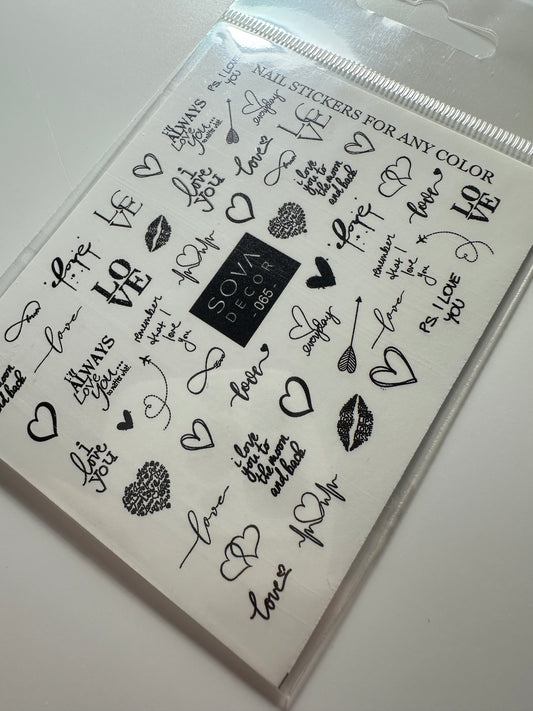 NAIL STICKERS FOR ANY COLOR
P.S. I LOVE
YOU
I'LL
ALWAYS
LOVE
YOU...
everyday
LO
VE
love
i
love
you
i love
you to
the moon
and back
love
LO
VE
LO
VE
SOVA
DECOR
-065-
remember
that I
love
you
P.S. I LOVE
YOU
LO
VE
love
remember
that I
love
you
everyday
love
I'LL
ALWAYS
LOVE
YOU...
love
moon
and back
i
love
you
i love
you to
the moon
and back
love
love